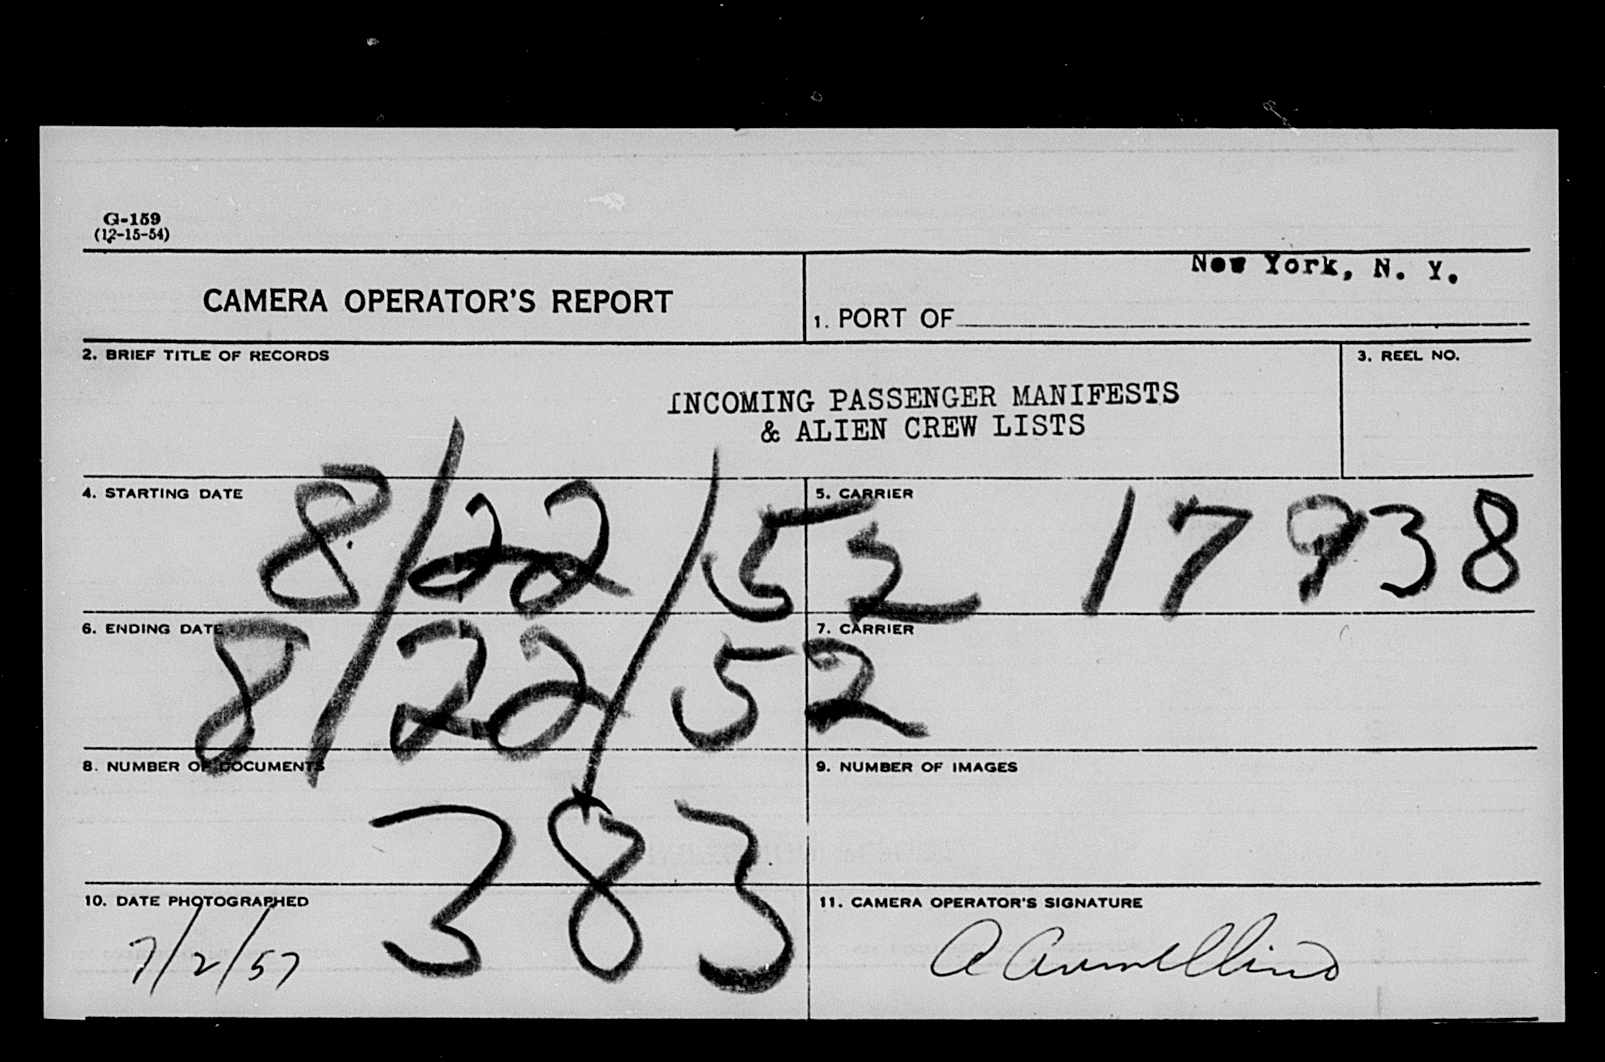 G-159
(12-15-54)
CAMERA OPERATOR'S REPORT
1. PORT OF New York, N. Y.
2. BRIEF TITLE OF RECORDS
INCOMING PASSENGER MANIFESTS
& ALIEN CREW LISTS
3. REEL NO.
4. STARTING DATE 8/22/52
5. CARRIER 17938
6. ENDING DATE 8/22/52
7. CARRIER
8. NUMBER OF DOCUMENTS
383
9. NUMBER OF IMAGES
10. DATE PHOTOGRAPHED
7/2/57
11. CAMERA OPERATOR'S SIGNATURE